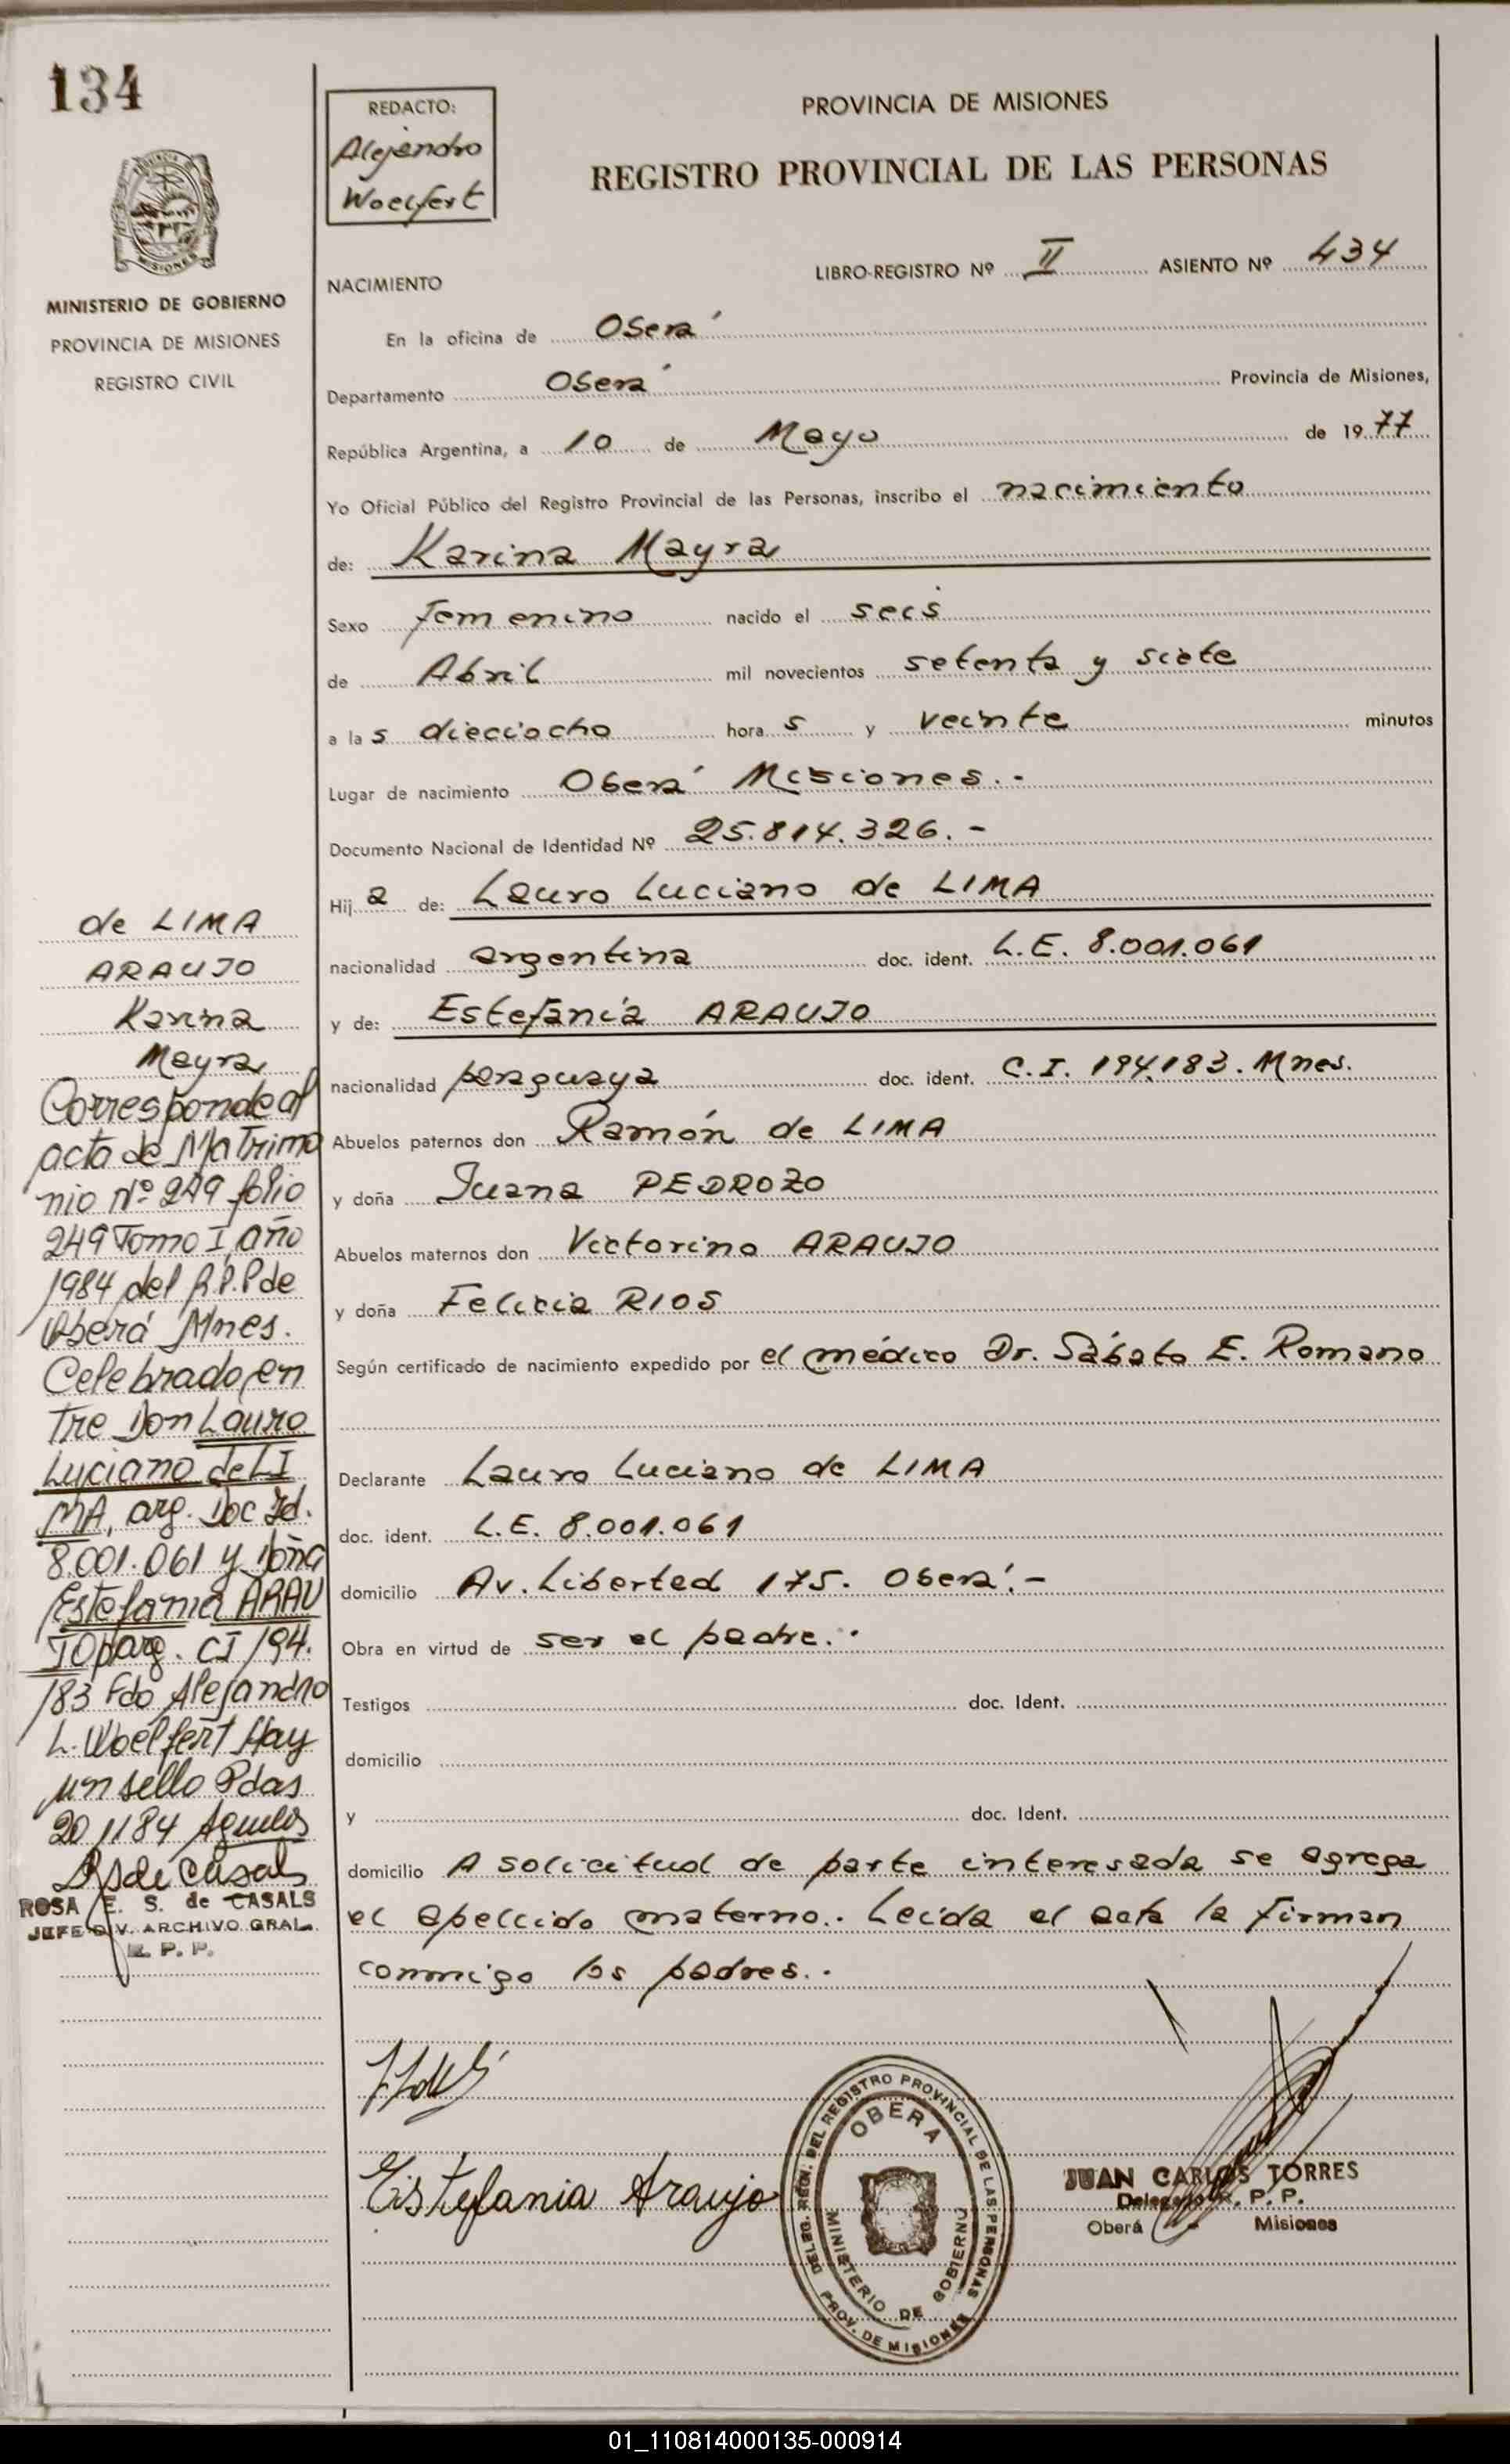 134
REDACTO:
Alejandro
Woelfert
PROVINCIA DE MISIONES
REGISTRO PROVINCIAL DE LAS PERSONAS
MINISTERIO DE GOBIERNO
PROVINCIA DE MISIONES
REGISTRO CIVIL
LIBRO-REGISTRO Nº II ASIENTO Nº 434
NACIMIENTO
En la oficina de Oberá
Departamento Oberá Provincia de Misiones,
República Argentina, a 10 de Mayo de 1977
Yo Oficial Público del Registro Provincial de las Personas, inscribo el nacimiento
de: Karina Mayra
Sexo femenino nacido el seis
de Abril mil novecientos setenta y siete
a las dieciocho horas y veinte minutos
Lugar de nacimiento Oberá Misiones.-
Documento Nacional de Identidad Nº 25.814.326.-
Hija de: Lauro Luciano de LIMA
nacionalidad argentina doc. ident. L.E. 8.001.061
y de: Estefanía ARAUJO
nacionalidad paraguaya doc. ident. C.I. 194.183. Mnes.
Abuelos paternos don Ramón de LIMA
y doña Juana PEDROZO
Abuelos maternos don Victorino ARAUJO
y doña Felicia RIOS
Según certificado de nacimiento expedido por el médico Dr. Sábato E. Romano
Declarante Lauro Luciano de LIMA
doc. ident. L.E. 8.001.061
domicilio Av. Libertad 175. Oberá.-
Obra en virtud de ser el padre..
Testigos doc. Ident.
domicilio
y doc. Ident.
domicilio A solicitud de parte interesada se agrega
el apellido materno.. Leída el acta la firman
conmigo los padres..
de LIMA
ARAUJO
Karina
Mayra
Corresponde al
acta de Matrimo
nio Nº 249 folio
249 Tomo I, año
1984 del R.P.P de
Oberá Mnes.
Celebrado en
Tre Don Lauro
Luciano de LI
MA, arg. Doc Id.
8.001.061 y Doña
Estefania ARAU
JO parg. CI 194.
183 Fdo Alejandro
L. Woelfert Hay
un sello Pdas
20/1184
ROSA E. S. de CASALS
JEFE DIV. ARCHIVO GRAL.
R. P. P.
Estefania Araujo
DELEG. REGN. DEL REGISTRO PROVINCIAL DE LAS PERSONAS
OBERA
MINISTERIO DE GOBIERNO
PROV. DE MISIONES
JUAN CARLOS TORRES
Delegado R. P. P.
Oberá - Misiones
01_110814000135-000914